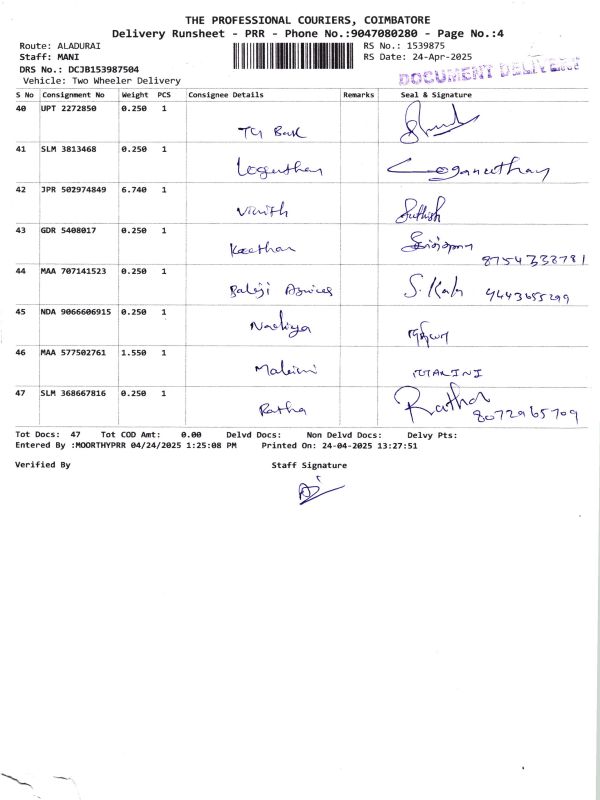 THE PROFESSIONAL COURIERS, COIMBATORE
Delivery Runsheet - PRR - Phone No.:9047080280 - Page No.:4
Route: ALADURAI RS No.: 1539875
Staff: MANI RS Date: 24-Apr-2025
DRS No.: DCJB153987504
Vehicle: Two Wheeler Delivery
DOCUMENT DELIVERE
S No Consignment No Weight PCS Consignee Details Remarks Seal & Signature
40 UPT 2272850 0.250 1
41 SLM 3813468 0.250 1
Loganthan Loganathan
42 JPR 502974849 6.740 1
Vinith Sathish
43 GDR 5408017 0.250 1
Keethan
8754332781
44 MAA 707141523 0.250 1
Balaji S. Kala 9443655299
45 NDA 9066606915 0.250 1
Nachiya
46 MAA 577502761 1.550 1
Malini MALINI
47 SLM 368667816 0.250 1
Ratha Ratha
8072965709
Tot Docs: 47 Tot COD Amt: 0.00 Delvd Docs: Non Delvd Docs: Delvy Pts:
Entered By :MOORTHYPRR 04/24/2025 1:25:08 PM Printed On: 24-04-2025 13:27:51
Verified By Staff Signature